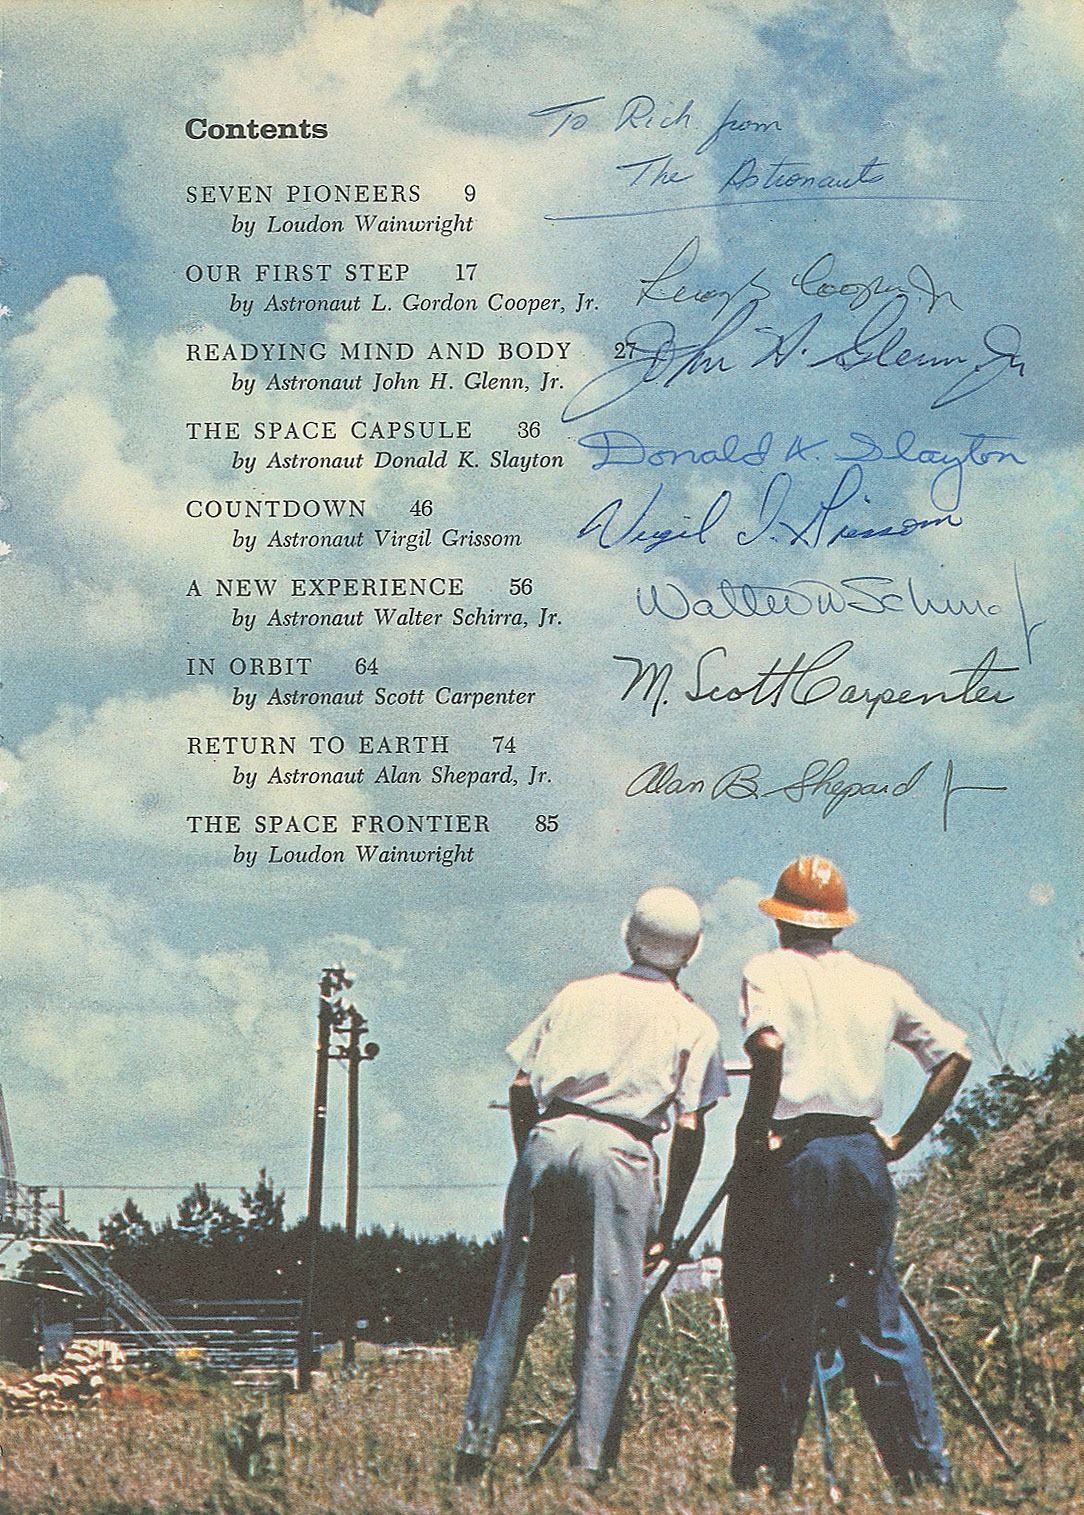 Contents
To Rich from
The Astronauts
SEVEN PIONEERS 9
by Loudon Wainwright
OUR FIRST STEP 17
by Astronaut L. Gordon Cooper, Jr.
Cooper Jr
READYING MIND AND BODY 27
John H. Glenn, Jr
by Astronaut John H. Glenn, Jr.
THE SPACE CAPSULE 36
by Astronaut Donald K. Slayton
Donald K. Slayton
COUNTDOWN 46
Virgil I. Grissom
by Astronaut Virgil Grissom
A NEW EXPERIENCE 56
Walter M Schirra Jr
by Astronaut Walter Schirra, Jr.
IN ORBIT 64
M. Scott Carpenter
by Astronaut Scott Carpenter
RETURN TO EARTH 74
by Astronaut Alan Shepard, Jr.
Alan B. Shepard Jr
THE SPACE FRONTIER 85
by Loudon Wainwright